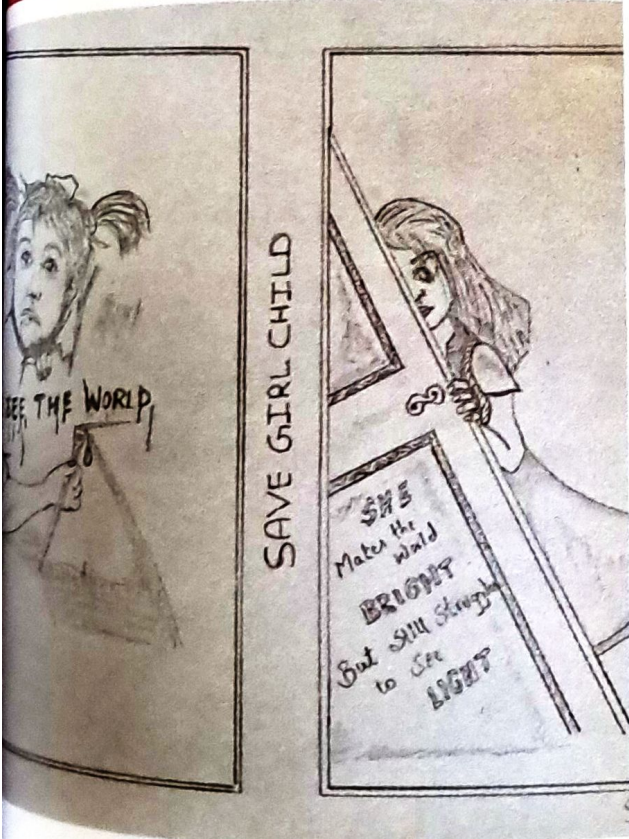 SEE THE WORLD
SAVE GIRL CHILD
SHE
Makes the
World
BRIGHT
But Still Struggles
to See
LIGHT